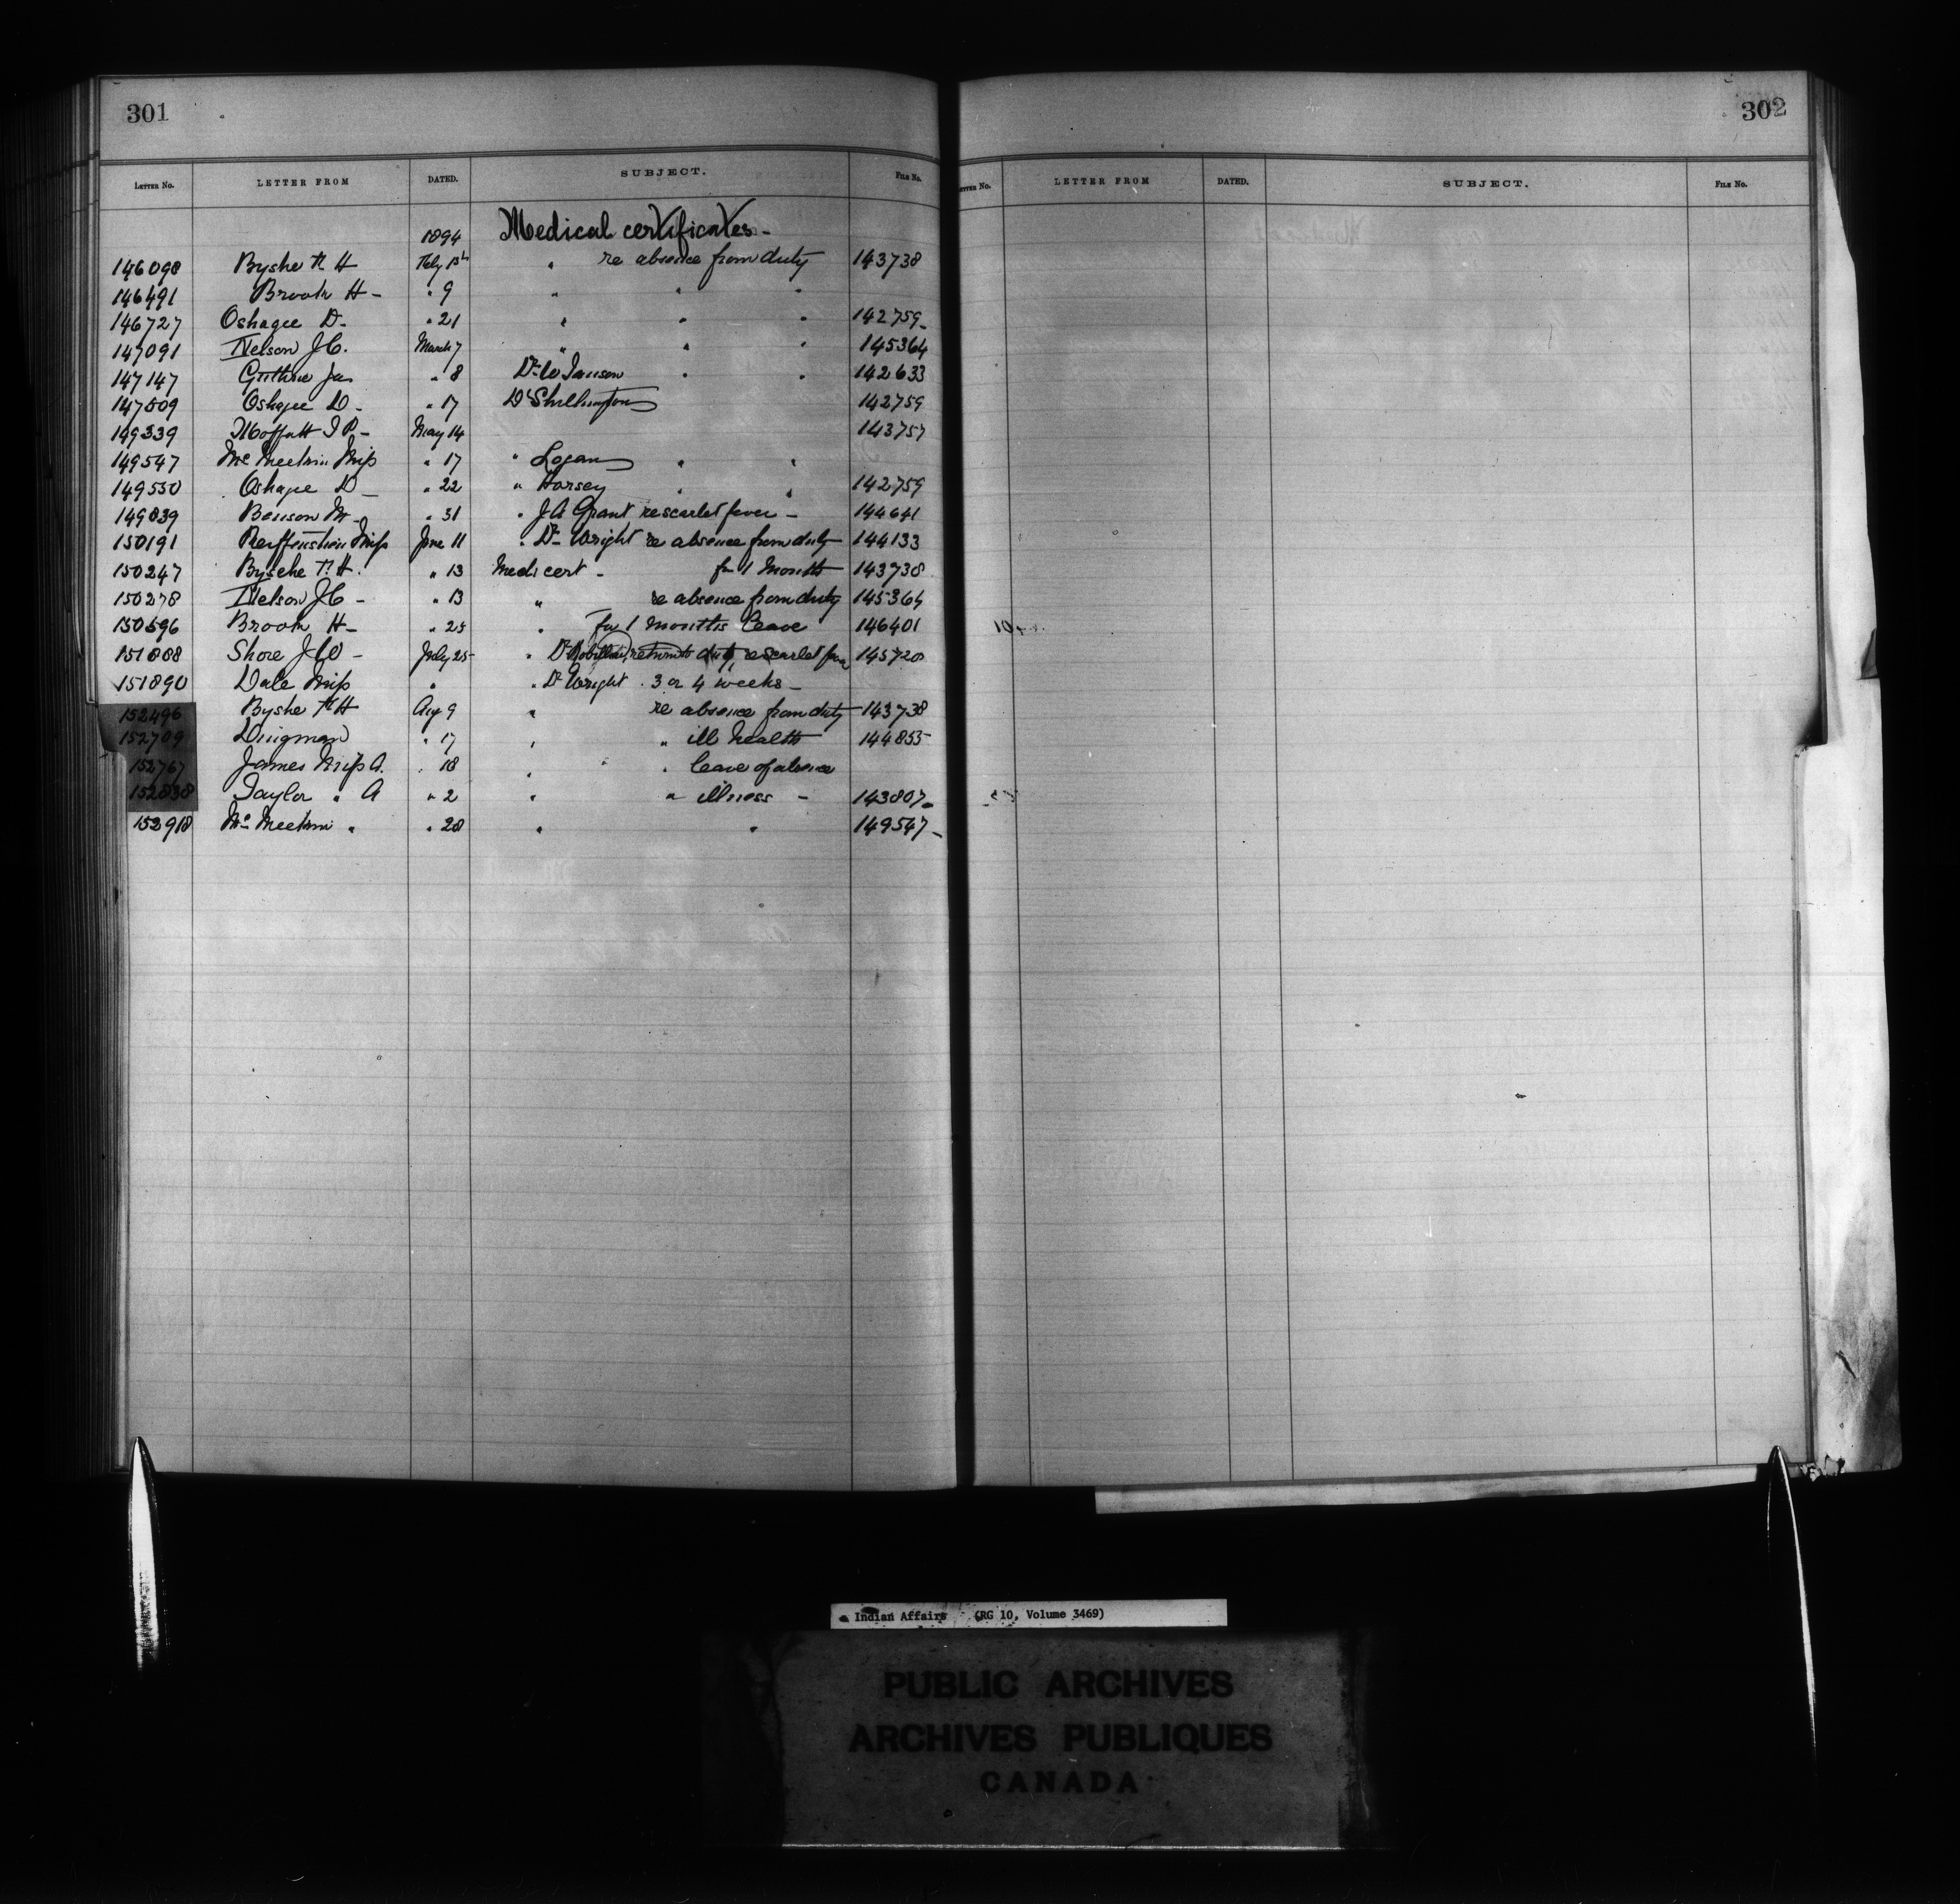 301
LETTER No. LETTER FROM DATED. SUBJECT. FILE No.
1894 Medical certificates -
146098 Byshe F H Feby 13th " re absence from duty 143738
146491 Brook H - " 9 " " "
146727 Oshagee D. " 21 " " " 142759
147091 Nelson J.C. March 7 " " " 145364
147147 Guthrie Jas " 8 Dr W " " 142633
147509 Oshagee D - " 17 Dr 142759
149339 Moffatt T P - May 14 143757
149547 Mc Miss " 17 " Logan " "
149550 Oshagee D - " 22 " Horsey " " 142759
149839 Benson M - " 31 " J A Grant re scarlet fever - 144641
150191 Miss June 11 " Dr Wright re absence from duty 144133
150247 Byshe F. H. " 13 Medi cert - for 1 Month 143738
150278 Nelson J C - " 13 " re absence from duty 145364
150596 Brook H - " 25 " for 1 months leave 146401
151888 Shore J W - July 25 " Dr return to duty, re scarlet fever 145720
151890 Dale Miss " " Dr Wright . 3 or 4 weeks -
152496 Byshe F H Aug 9 " re absence from duty 143738
152709 Dingman " 17 " " ill health 144855
152767 James Miss A. " 18 " " " leave of absence
152838 Taylor " A " 2 " " illness - 143807
152918 Mc " " 28 " " 149547
302
LETTER No. LETTER FROM DATED. SUBJECT. FILE No.
Indian Affairs (RG 10, Volume 3469)
PUBLIC ARCHIVES
ARCHIVES PUBLIQUES
CANADA